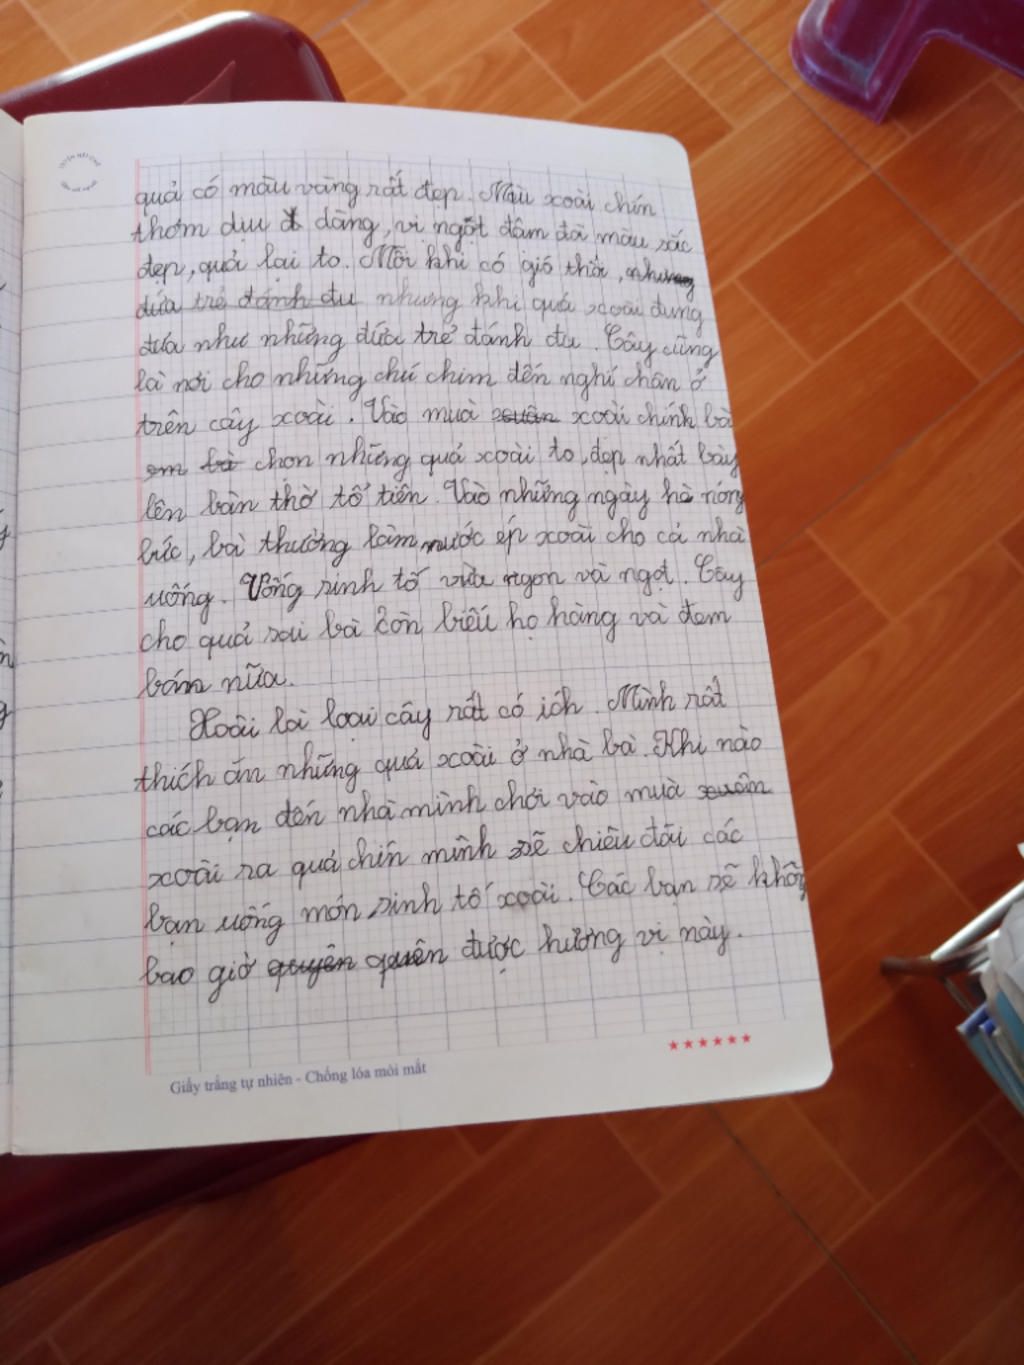 quả có màu vàng rất đẹp. Mùi xoài chín
thơm dịu dàng, vị ngọt đâm đà màu sắc
đẹp, quả lại to. Mỗi khi có gió thổi, nhưng
đứa trẻ đánh đu nhưng khi quả xoài đung
đưa như những đứa trẻ đánh đu. Cây cũng
là nơi cho những chú chim đến nghỉ chân ở
trên cây xoài. Vào muà xuân xoài chính bà
em bà chọn những quả xoài to, đẹp nhất bày
lên bàn thờ tổ tiên. Vào những ngày hè nóng
bức, bà thường làm nước ép xoài cho cả nhà
uống. Uống sinh tố vừa ngon và ngọt. Cây
cho quả sai bà còn biếu họ hàng và đem
bán nữa.
Xoài là loại cây rất có ích. Mình rất
thích ăn những quả xoài ở nhà bà. Khi nào
các bạn đến nhà mình chơi vào muà xuân
xoài ra quả chín mình sẽ chiêu đãi các
bạn uống món sinh tố xoài. Các bạn sẽ không
bao giờ quyên quên được hương vị này.
Giấy trắng tự nhiên - Chống lóa mỏi mắt